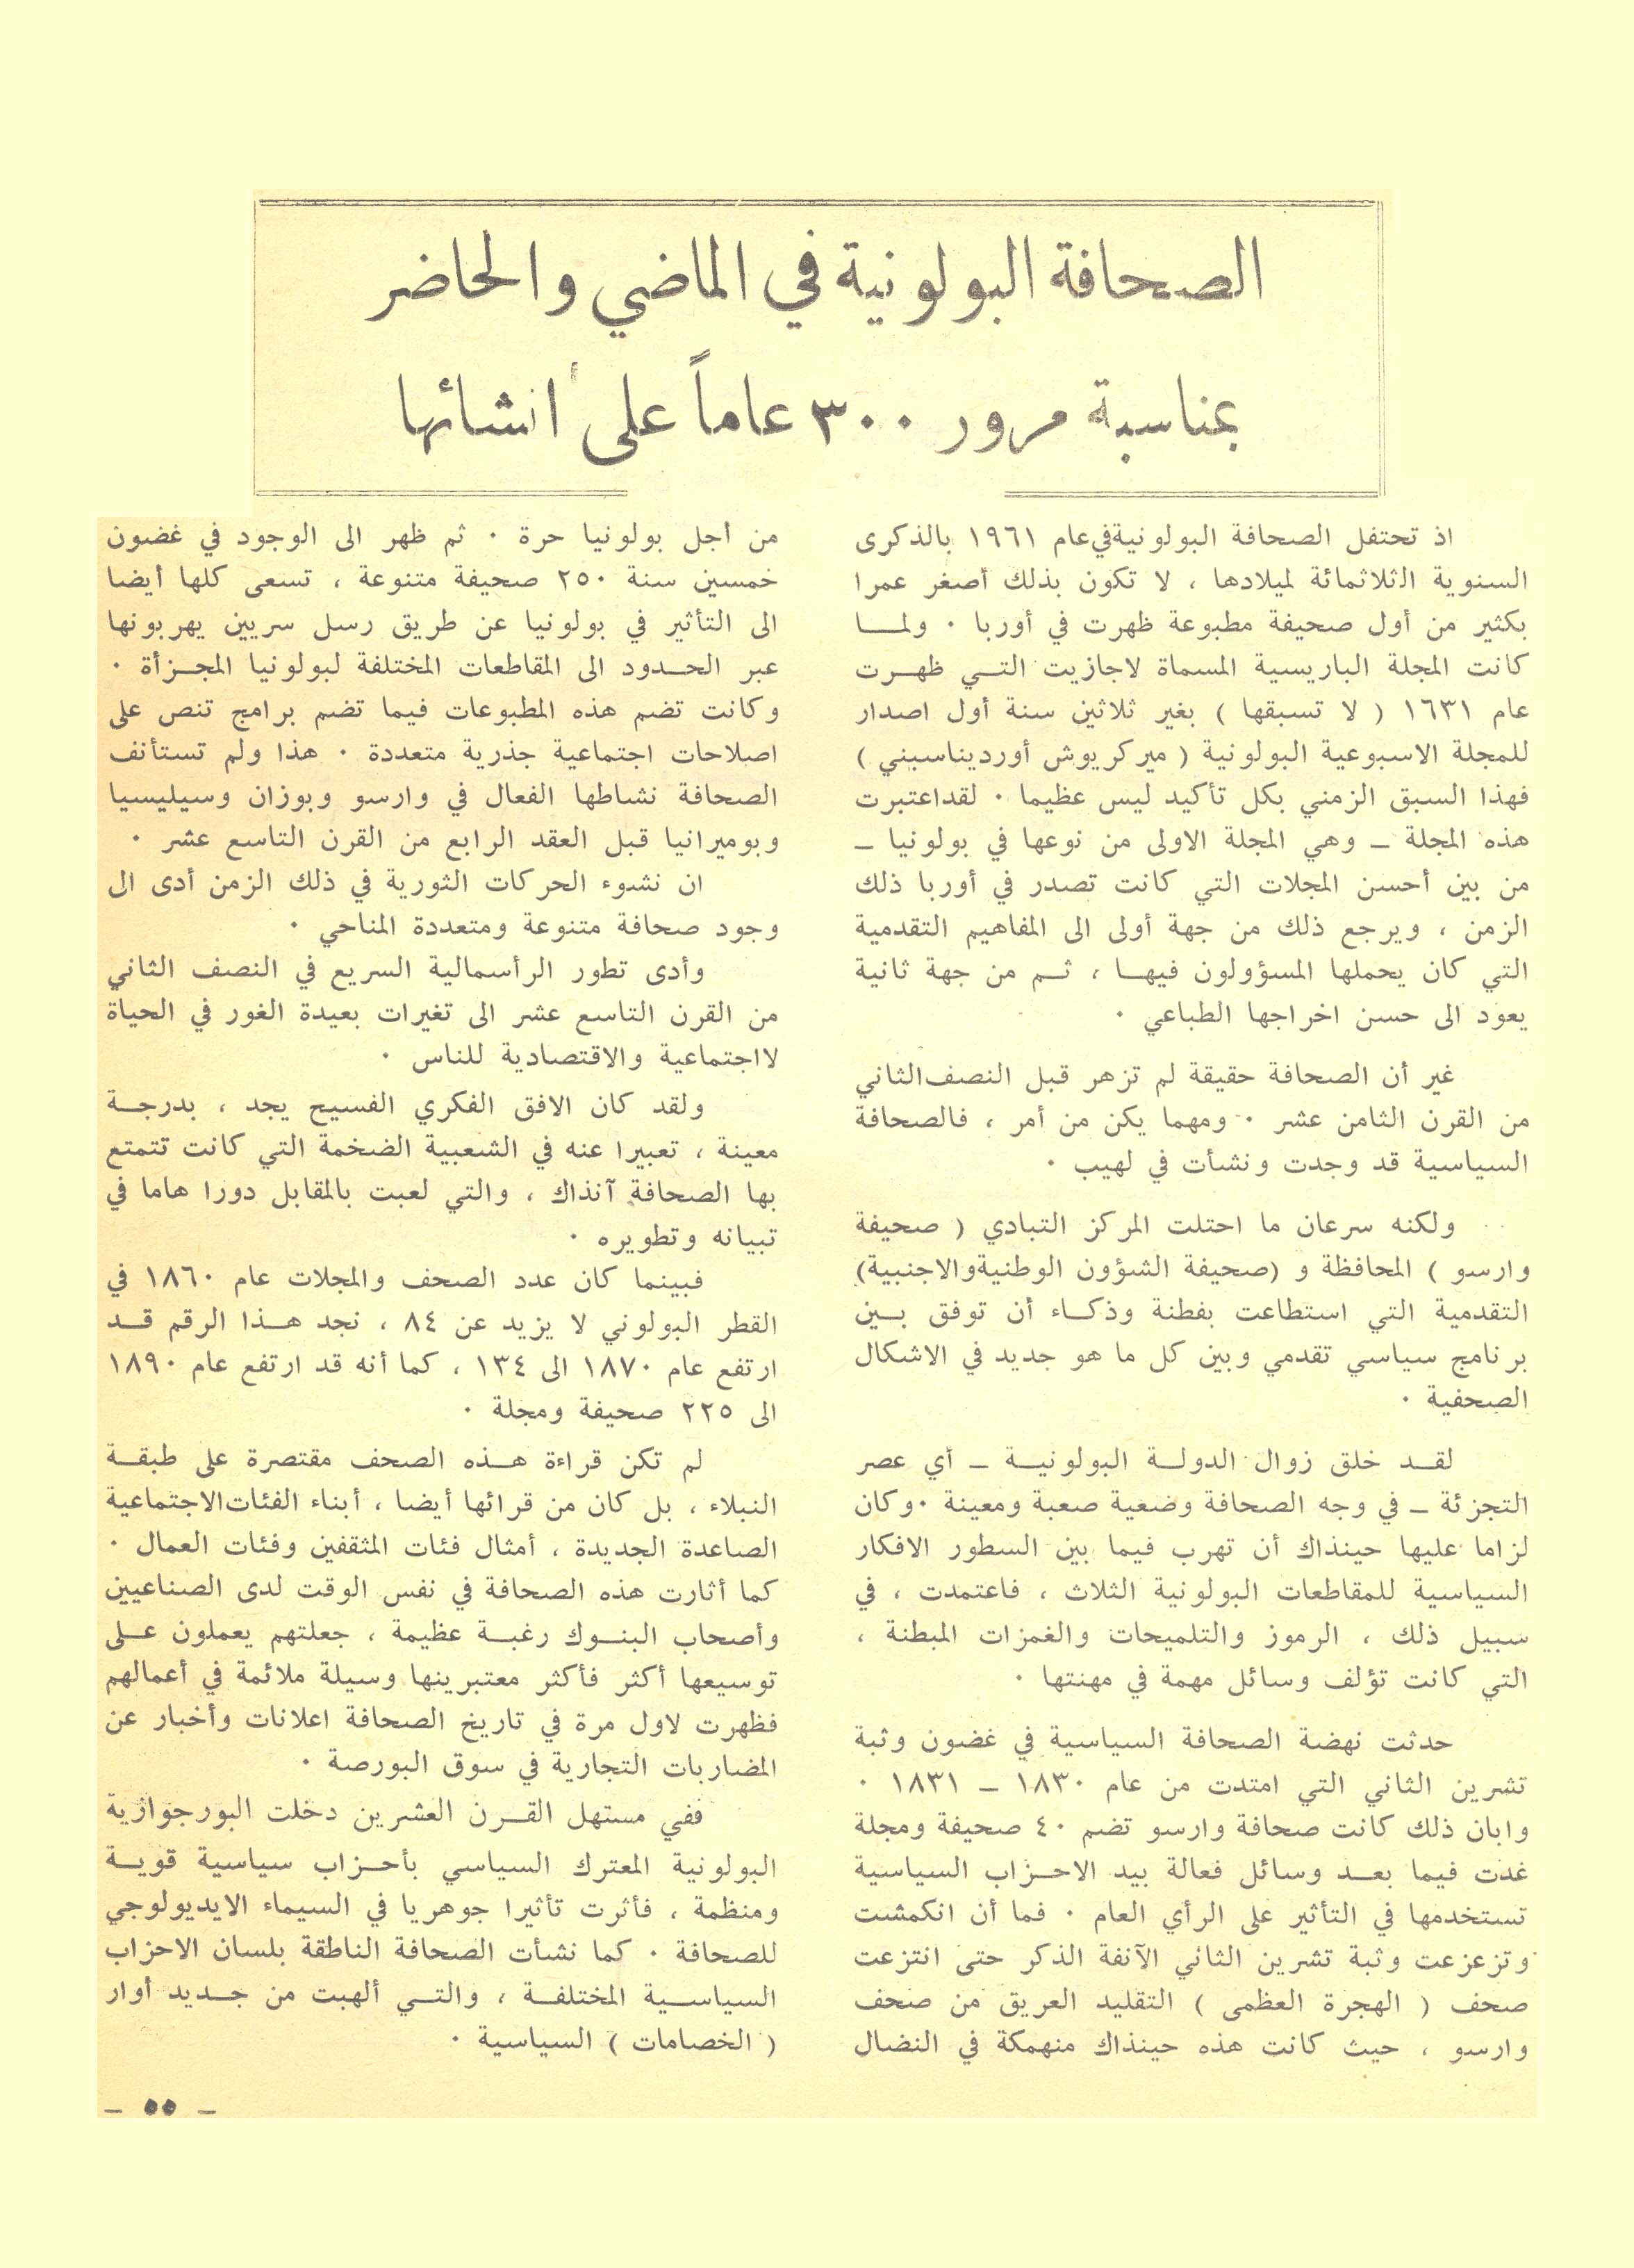 الصحافة البولونية في الماضي والحاضر
بمناسبة مرور ٣٠٠ عاماً على أنشائها
اذ تحتفل الصحافة البولونية في عام ١٩٦١ بالذكرى
السنوية الثلاثمائة لميلادها ، لا تكون بذلك أصغر عمرا
بكثير من أول صحيفة مطبوعة ظهرت في أوربا ٠ ولمـــا
كانت المجلة الباريسية المسماة لاجازيت التـي ظهـرت
عام ١٦٣١ ( لا تسبقها ) بغير ثلاثين سنة أول اصدار
للمجلة الاسبوعية البولونية ( ميركريوش أورديناسيني )
فهذا السبق الزمني بكل تأكيد ليس عظيما ٠ لقداعتبرت
هذه المجلة ـ وهي المجلة الاولى من نوعها في بولونيا ـ
من بين أحسن المجلات التي كانت تصدر في أوربا ذلك
الزمن ، ويرجع ذلك من جهة أولى الى المفاهيم التقدمية
التي كان يحملها المسؤولون فيهـا ، ثـم من جهة ثانية
يعود الى حسن اخراجها الطباعي ٠
غير أن الصحافة حقيقة لم تزهر قبل النصف الثاني
من القرن الثامن عشر ٠ ومهما يكن من أمر ، فالصحافة
السياسية قد وجدت ونشأت في لهيب ٠
ولكنه سرعان ما احتلت المركز التبادي ( صحيفة
وارسو ) المحافظة و (صحيفة الشؤون الوطنية والاجنبية)
التقدمية التي استطاعت بفطنة وذكـاء أن توفق بـين
برنامج سياسي تقدمي وبين كل ما هو جديد في الاشكال
الصحفية ٠
لقـد خلق زوال الدولـة البولونيـة ـ أي عصر
التجزئة ـ في وجه الصحافة وضعية صعبة ومعينة ٠ وكان
لزاما عليها حينذاك أن تهرب فيما بين السطور الافكار
السياسية للمقاطعات البولونية الثلاث ، فاعتمدت ، في
سبيل ذلك ، الرموز والتلميحات والغمزات المبطنة ،
التي كانت تؤلف وسائل مهمة في مهنتها ٠
حدثت نهضة الصحافة السياسية في غضون وثبة
تشرين الثاني التي امتدت من عام ١٨٣٠ ـ ١٨٣١ ٠
وابان ذلك كانت صحافة وارسو تضم ٤٠ صحيفة ومجلة
غدت فيما بعـد وسائل فعالة بيد الاحـزاب السياسية
تستخدمها في التأثير على الرأي العام ٠ فما أن انكمشت
وتزعزعت وثبة تشرين الثاني الآنفة الذكر حتى انتزعت
صحف ( الهجرة العظمى ) التقليد العريق من صحف
وارسو ، حيث كانت هذه حينذاك منهمكة في النضال
من أجل بولونيا حرة ٠ ثم ظهر الى الوجود في غضون
خمسين سنة ٢٥٠ صحيفة متنوعة ، تسعى كلها أيضا
الى التأثير في بولونيا عن طريق رسل سريين يهربونها
عبر الحـدود الى المقاطعات المختلفة لبولونيا المجـزأة ٠
وكانت تضم هذه المطبوعات فيما تضم برامج تنص على
اصلاحات اجتماعية جذرية متعددة ٠ هذا ولم تستأنف
الصحافة نشاطها الفعال في وارسو وبوزان وسيليسيا
وبوميرانيا قبل العقد الرابع من القرن التاسع عشر ٠
ان نشوء الحركات الثورية في ذلك الزمن أدى ال
وجود صحافة متنوعة ومتعددة المناحي ٠
وأدى تطور الرأسمالية السريع في النصف الثاني
من القرن التاسع عشر الى تغيرات بعيدة الغور في الحياة
لااجتماعية والاقتصادية للناس ٠
ولقد كان الافق الفكري الفسيح يجد ، بدرجـة
معينة ، تعبيرا عنه في الشعبية الضخمة التي كانت تتمتع
بها الصحافة آنذاك ، والتي لعبت بالمقابل دورا هاما في
تبيانه وتطويره ٠
فبينما كان عدد الصحف والمجلات عام ١٨٦٠ في
القطر البولوني لا يزيد عن ٨٤ ، نجد هـذا الرقم قـد
ارتفع عام ١٨٧٠ الى ١٣٤ ، كما أنه قد ارتفع عام ١٨٩٠
الى ٢٢٥ صحيفة ومجلة ٠
لم تكن قراءة هـذه الصحف مقتصرة على طبقـة
النبلاء ، بل كان من قرائها أيضا ، أبناء الفئات الاجتماعية
الصاعدة الجديدة ، أمثال فئات المثقفين وفئات العمال ٠
كما أثارت هذه الصحافة في نفس الوقت لدى الصناعيين
وأصحاب البنـوك رغبـة عظيمة ، جعلتهم يعملون عـلى
توسيعها أكثر فأكثر معتبرينها وسيلة ملائمة في أعمالهم
فظهرت لاول مرة في تاريخ الصحافة اعلانات وأخبار عن
المضاربات التجارية في سوق البورصة ٠
ففي مستهل القـرن العشرين دخلت البورجوازية
البولونية المعترك السياسي بأحـزاب سياسية قويـة
ومنظمة ، فأثرت تأثيرا جوهريا في السيماء الايديولوجي
للصحافة ٠ كما نشأت الصحافة الناطقة بلسان الاحزاب
السياسـية المختلفـة ، والتـي ألهبت من جـديد أوار
( الخصامات ) السياسية ٠
ـ ٥٥ ـ